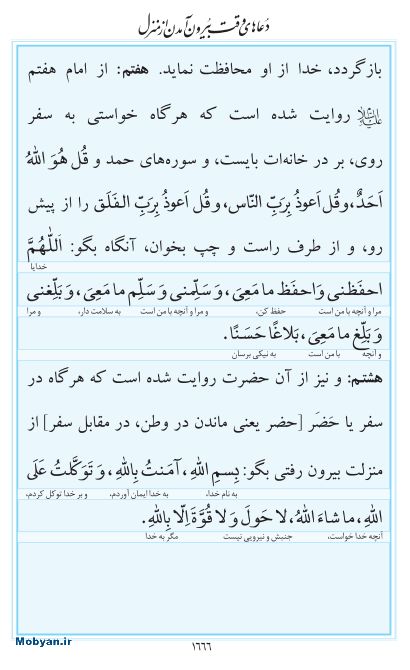 دعاهای وقت بیرون آمدن از منزل
بازگردد، خدا از او محافظت نماید. هفتم: از امام هفتم
علیه‌السلام روایت شده است که هرگاه خواستی به سفر
روی، بر در خانه‌ات بایست، و سوره‌های حمد و قُل هُوَ اللهُ
اَحَدٌ،وقُل اَعوذُ بِرَبِّ النّاس،وقُل اَعوذُ بِرَبِّ الفَلَق را از پیش
رو، و از طرف راست و چپ بخوان، آنگاه بگو: اَللّٰهُمَّ
خدایا
احفَظنی وَاحفَظ ما مَعِیَ، وَسَلِّمنی وَسَلِّم ما مَعِیَ، وَبَلِّغنی
مرا و آنچه با من است حفظ کن، و مرا و آنچه با من است به سلامت دار، و مرا
وَبَلِّغ ما مَعِیَ، بَلاغًا حَسَنًا.
و آنچه با من است به نیکی برسان
هشتم: و نیز از آن حضرت روایت شده است که هرگاه در
سفر یا حَضَر [حضر یعنی ماندن در وطن، در مقابل سفر] از
منزلت بیرون رفتی بگو: بِسمِ اللهِ، آمَنتُ بِاللهِ، وَتَوَکَّلتُ عَلَی
به نام خدا، به خدا ایمان آوردم، و بر خدا توکل کردم،
اللهِ، ما شاءَ اللهُ، لا حَولَ وَلا قُوَّةَ اِلّا بِاللهِ.
آنچه خدا خواست، جنبش و نیرویی نیست مگر به خدا
Mobyan.ir
۱۶۶۶